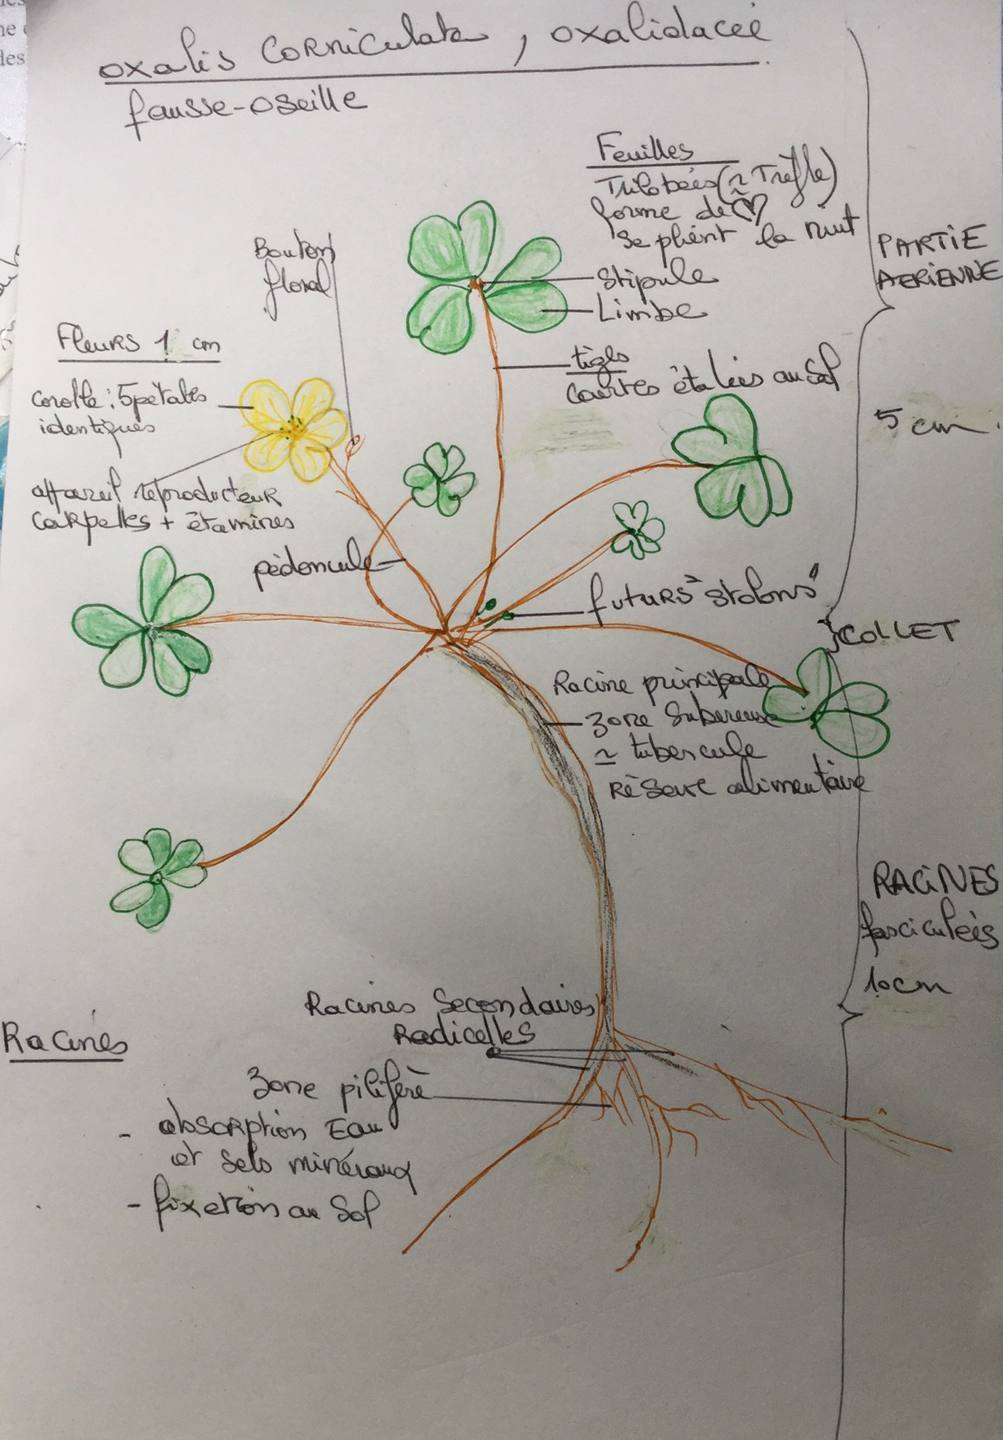 oxalis corniculata, oxalidacée
fausse-oseille
Feuilles
Trilobées (≃ Trèfle)
forme de ♡
se plient la nuit
Stipule
Limbe
tiges
courtes étalées au sol
PARTIE
AERIENNE
5 cm.
Bouton
floral
Fleurs 1 cm
corolle : 5 pétales
identiques
appareil reproducteur
carpelles + étamines
pédoncule
futurs "stolons"
COLLET
Racine principale
zone subereuse
≃ tubercule
réserve alimentaire
RACINES
fasciculées
10cm
Racines Secondaires
Radicelles
Racines
zone pilifère
- absorption Eau
et sels minéraux
- fixation au sol